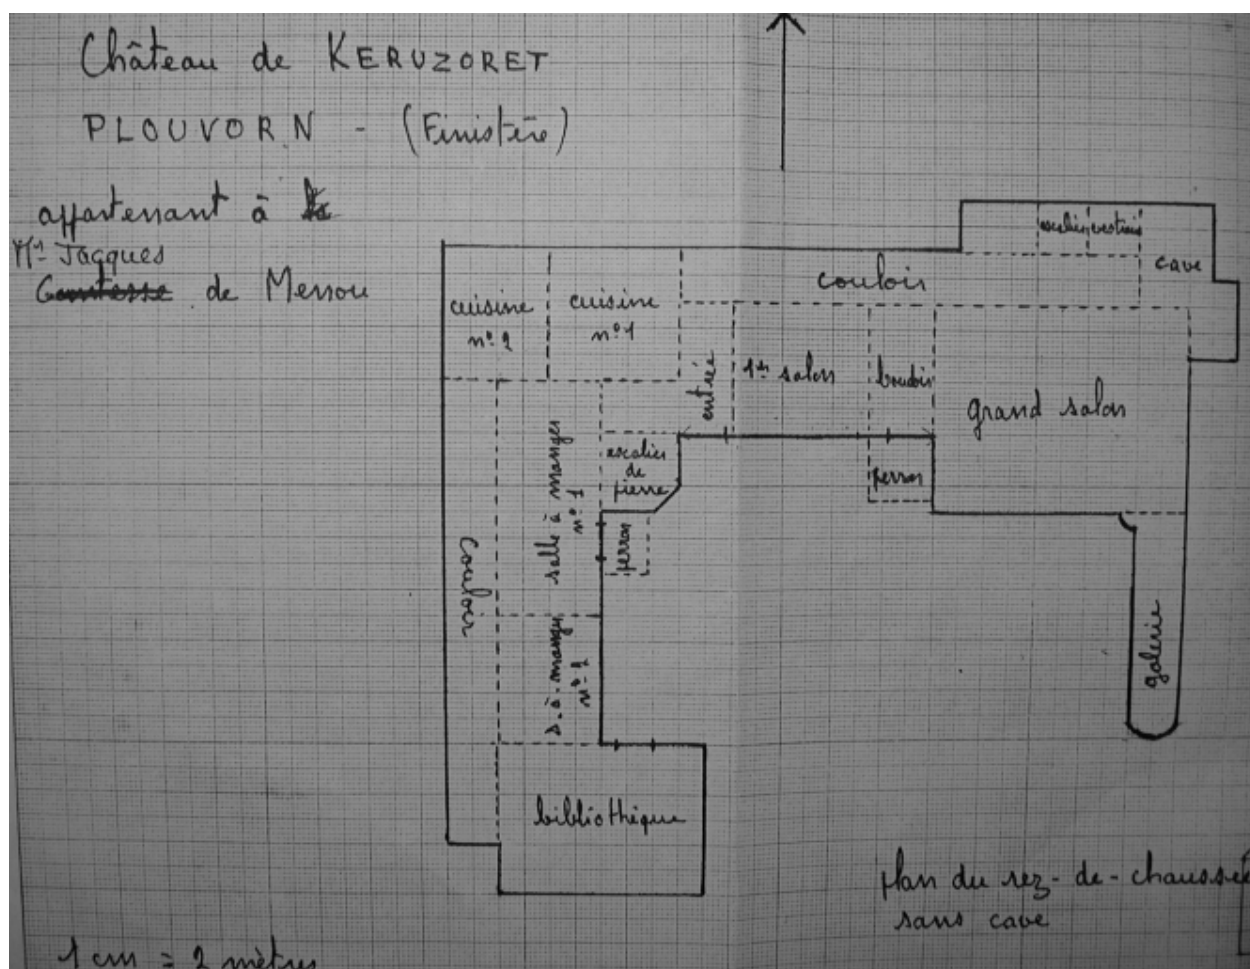 Château de KERUZORET
PLOUVORN - (Finistère)
appartenant à
Mr Jacques
Comtesse de Menou
escalier vestiaire
cave
couloir
cuisine
n° 2
cuisine
n° 1
entrée
1er salon
boudoir
grand salon
escalier
de
pierre
perron
salle à manger
n° 1
perron
couloir
s. à. manger
n° 2
galerie
bibliothèque
plan du rez-de-chaussée
sans cave
1 cm = 2 mètres